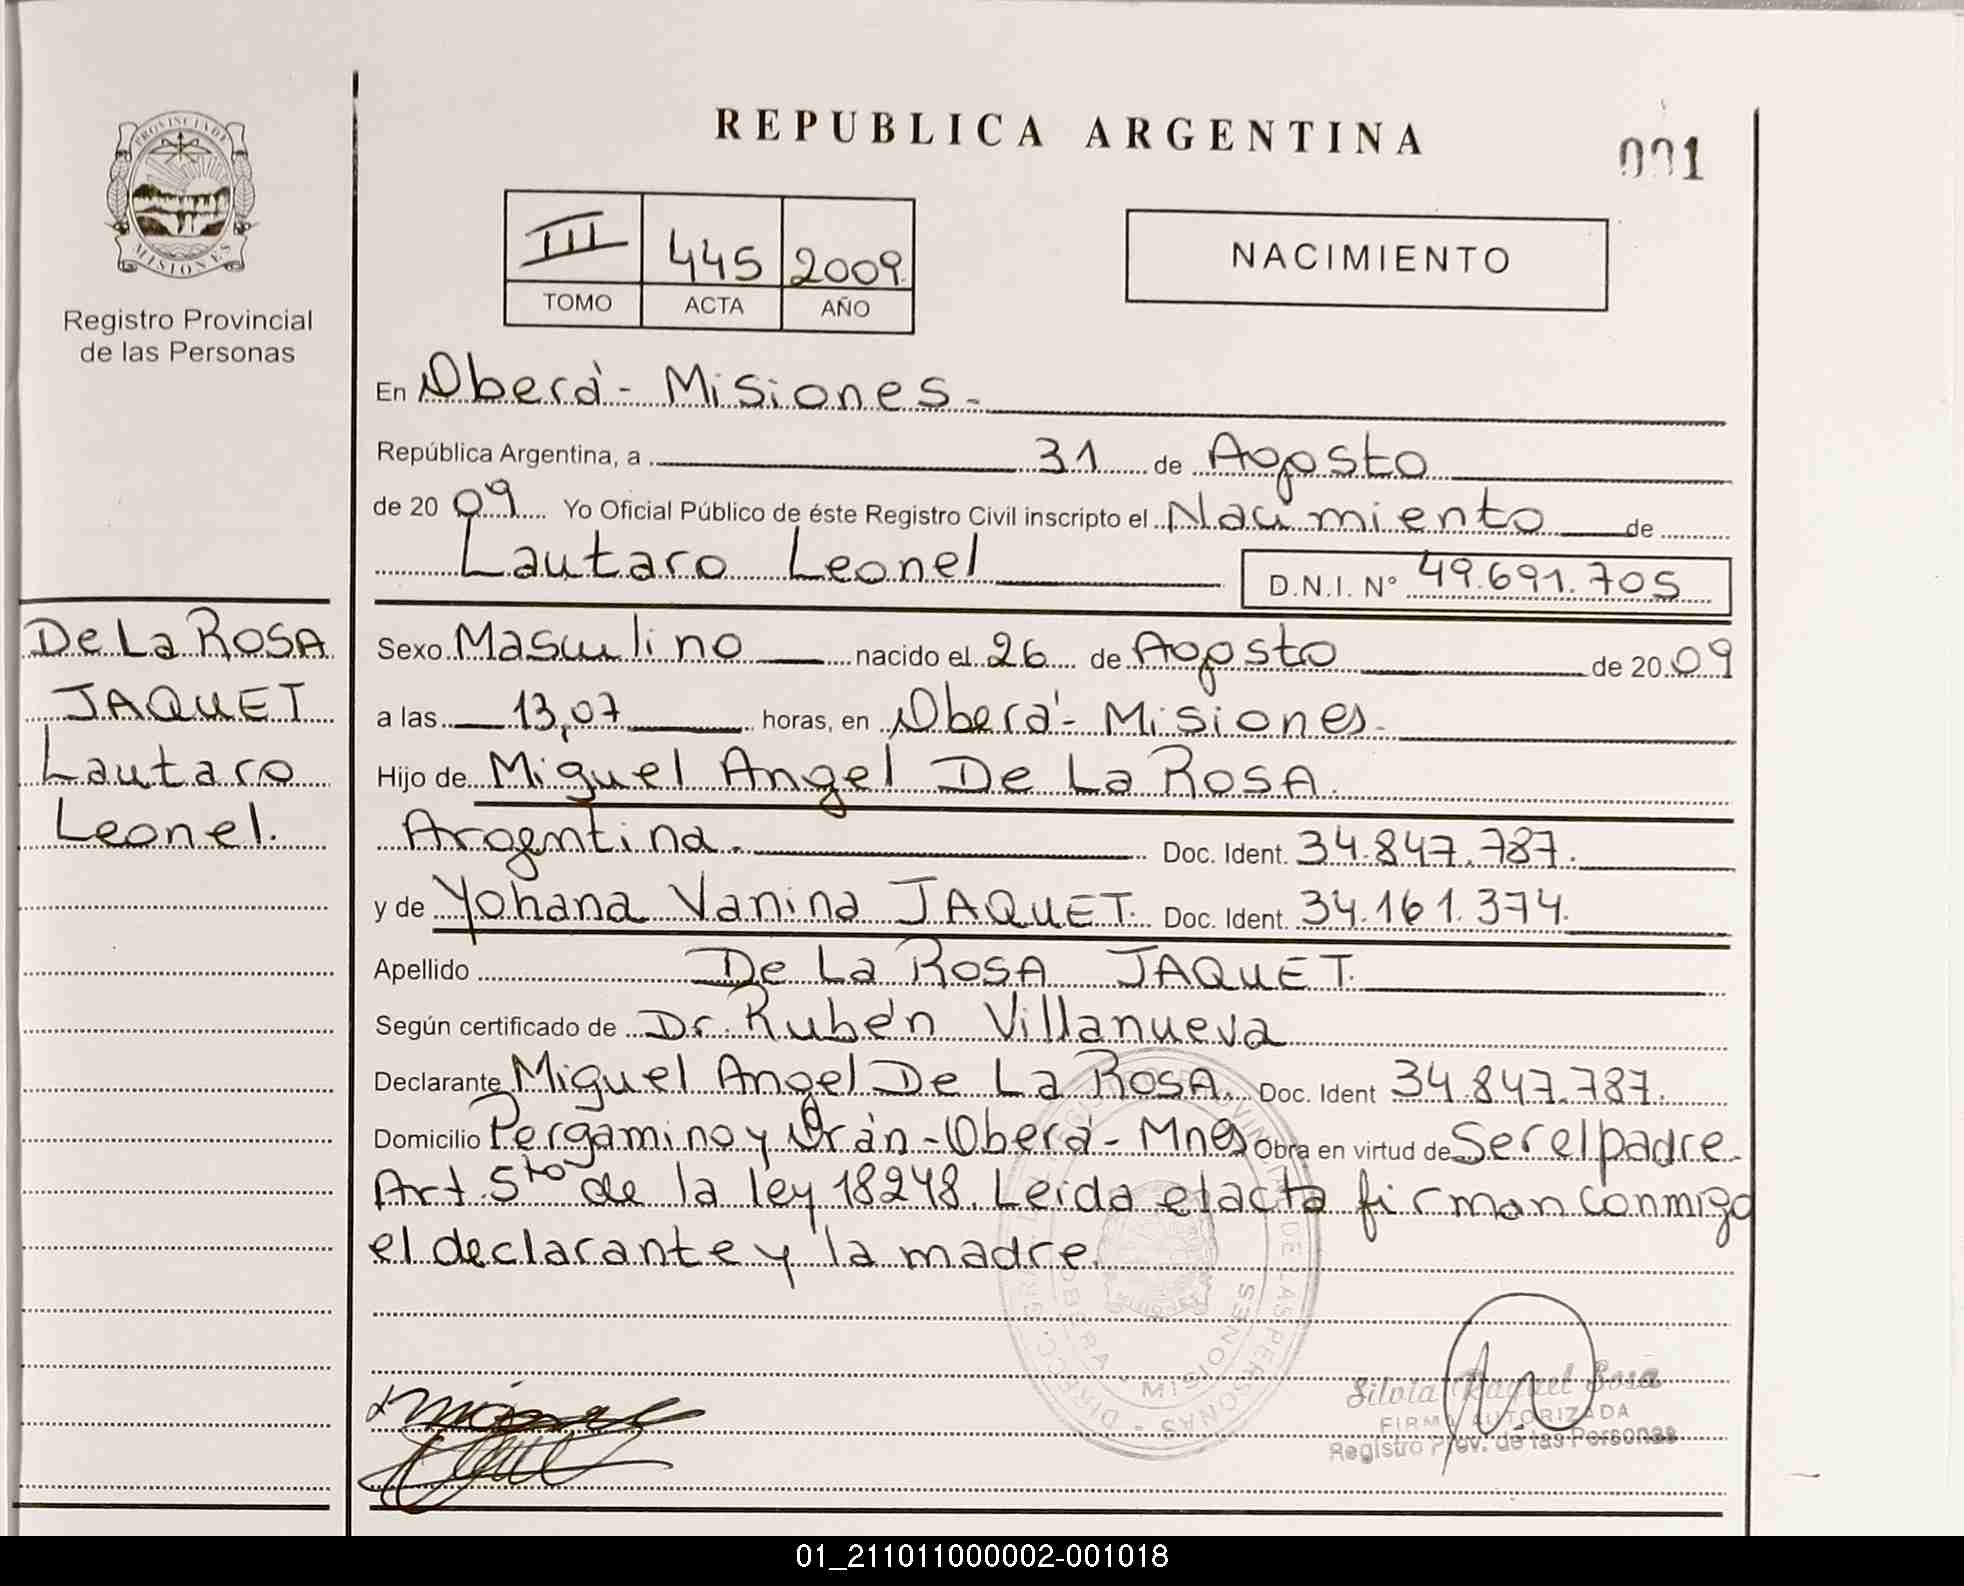 REPUBLICA ARGENTINA
001
PROVINCIA DE
MISIONES
Registro Provincial
de las Personas
III 445 2009.
TOMO ACTA AÑO
NACIMIENTO
En Oberá - Misiones.
República Argentina, a 31 de Agosto
de 20 09 Yo Oficial Público de éste Registro Civil inscripto el Nacimiento de
Lautaro Leonel D.N.I. N° 49.691.705
De La ROSA
JAQUET
Lautaro
Leonel.
Sexo Masculino nacido el 26 de Agosto de 20 09
a las 13,07 horas, en Oberá - Misiones.
Hijo de Miguel Angel De La ROSA.
Argentina. Doc. Ident. 34.847.787.
y de Yohana Vanina JAQUET. Doc. Ident. 34.161.374.
Apellido De La ROSA JAQUET.
Según certificado de Dr. Rubén Villanueva
Declarante Miguel Angel De La ROSA. Doc. Ident 34.847.787.
Domicilio Pergamino y Orán - Oberá - Mnes Obra en virtud de Ser el padre.
Art 5to de la ley 18248. Leida el acta firman conmigo
el declarante y la madre.
OBERA - MISIONES
Silvia Raquel Sosa
FIRMA AUTORIZADA
Registro Prov. de las Personas
01_211011000002-001018